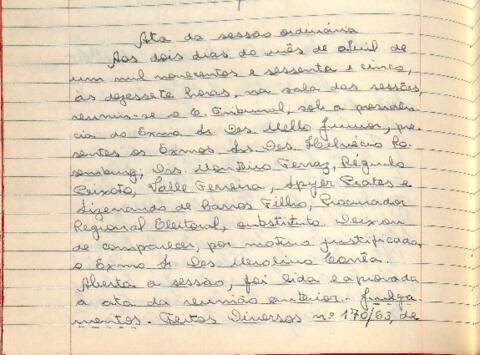 Ata da sessão ordinária
Aos dois dias do mês de abril de
um mil novecentos e sessenta e cinco,
às dezessete horas, na sala das sessões,
reuniu-se o E. Tribunal, sob a presidên-
cia do Exmo Sr. Des. Mello Junior, pre-
sentes os Exmos. Srs. Des. Helvécio Ro-
senburg, Drs. Monteiro Ferraz, Régulo
Peixoto, Valle Ferreira, Spyer Prates e
Lizenando de Barros Filho, Procurador
Regional Eleitoral, substituto. Deixou
de comparecer, por motivo justificado,
o Exmo Sr. Des. Merolino Corrêa.
Aberta a sessão, foi lida e aprovada
a ata da reunião anterior. - Julga-
mentos. Feitos Diversos nº 170/63, de